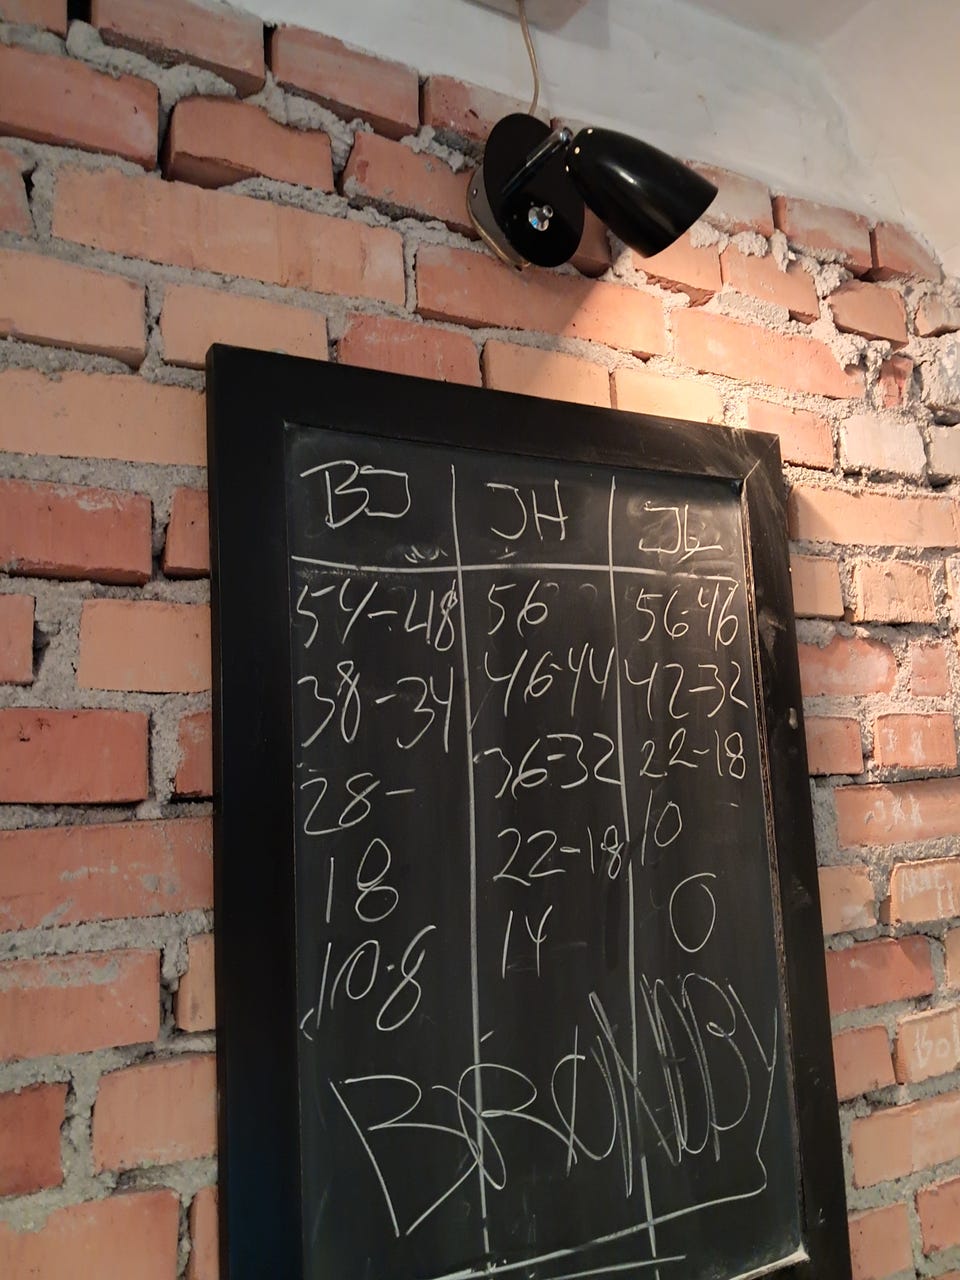 BJ JH JL
54-48 56 56-46
38-34 46-44 42-32
28- 36-32 22-18
18 22-18 10
10-8 14 0
BRØNDBY